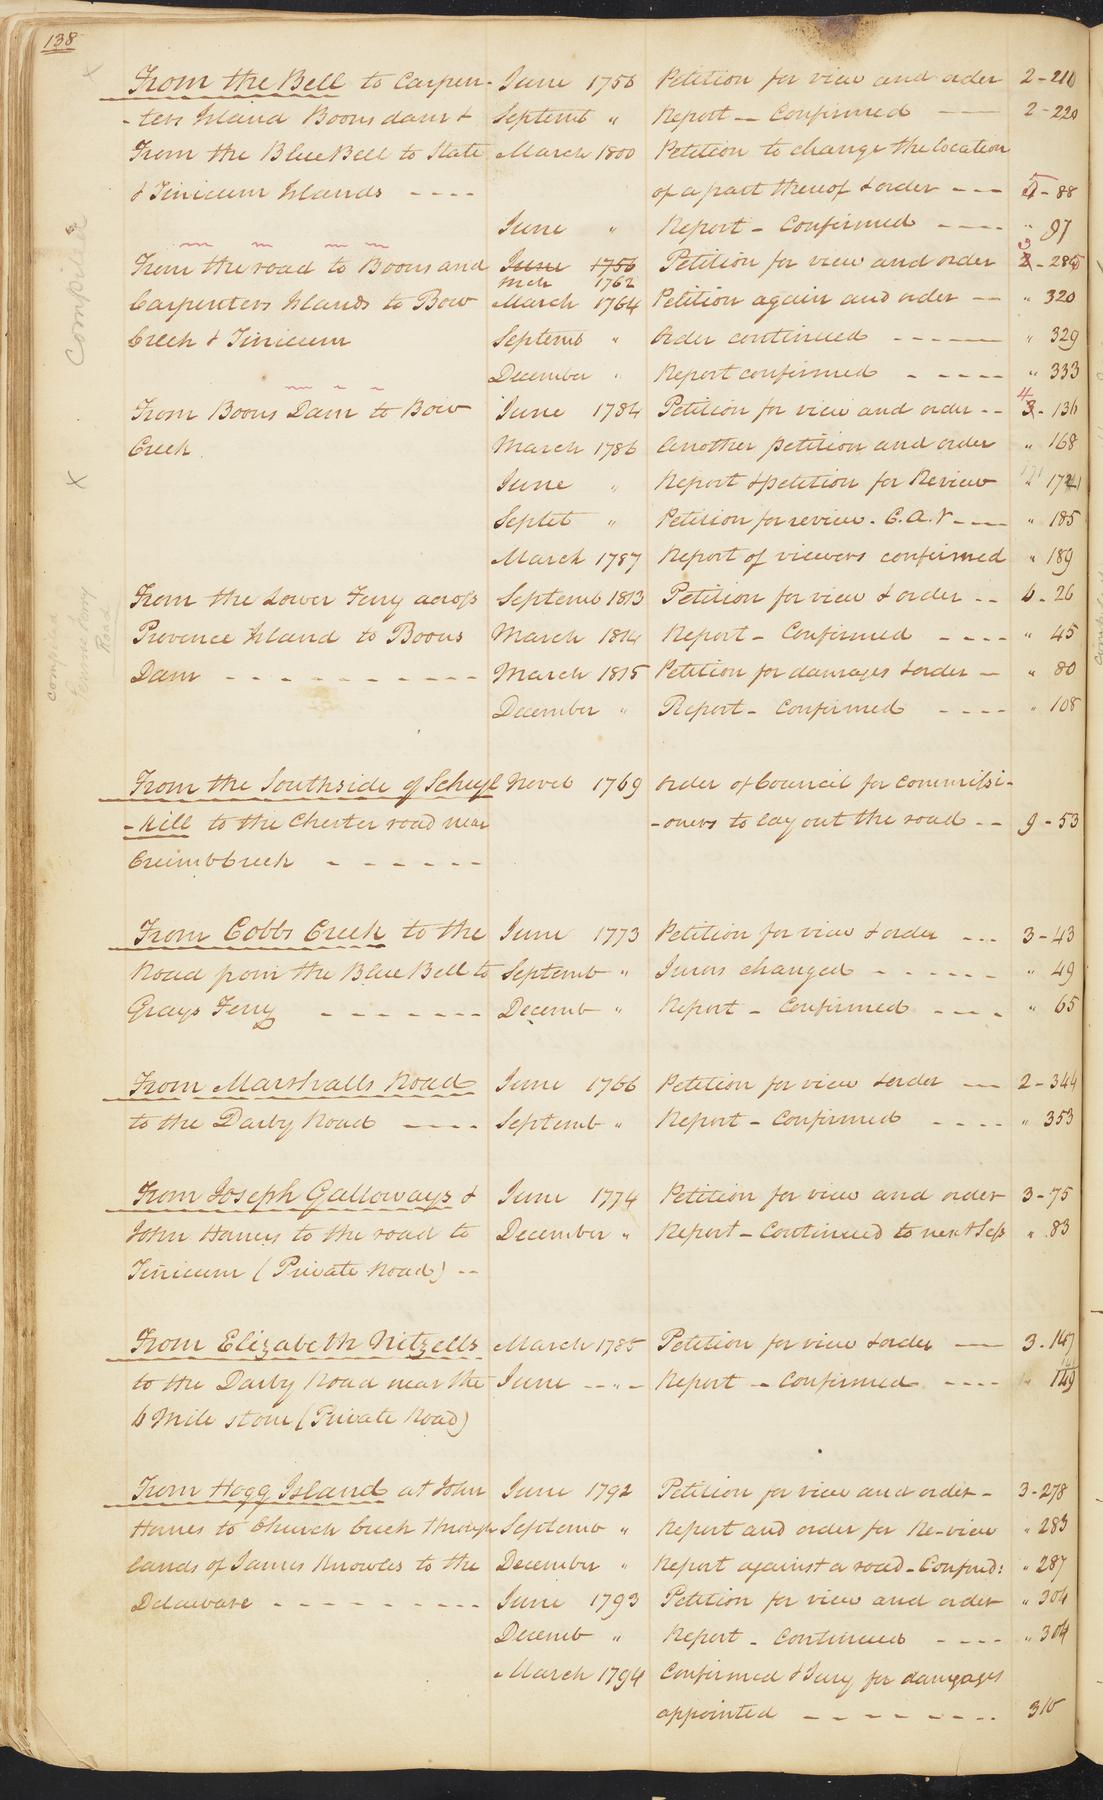 138
From the Bell to Carpen- June 1756 Petition for view and order 2-210
-ters Island Boons dam & Septemb " Report - Confirmed 2-220
From the Blue Bell to State March 1800 Petition to change the location
& Tinicum Islands - - - - of a part thereof & order - - - 5-88
June " Report - Confirmed - - - - " 97
From the road to Boons and June 1756 Petition for view and order 3-285
Mch 1762
Carpenters Islands to Bow March 1764 Petition again and order -- " 320
Creek & Tinicum Septemb " Order continued - - - - - " 329
December " Report confirmed - - - - - " 333
From Boons Dam to Bow June 1784 Petition for view and order -- 4-136
Creek. March 1786 Another petition and order " 168
June " Report & petition for Review 171
Septet " Petition for review. C.A.V - - - " 185
March 1787 Report of viewers confirmed " 189
From the Lower Ferry across Septemb 1813 Petition for view & order -- 6-26
Provence Island to Boons March 1814 Report - Confirmed - - - - " 45
Dam - - - - - - - - - - March 1815 Petition for damages & order - " 80
December " Report - Confirmed - - - - " 108
From the Southside of Schuyl Noveb 1769 Order of Council for commissi-
-kill to the Chester road near -oners to lay out the road -- 9-53
Crumb Creek - - - - - -
From Cobbs Creek to the June 1773 Petition for view & order - - - 3-43
Road from the Blue Bell to Septemb " Jurors changed - - - - - - " 49
Grays Ferry - - - - - - - Decemb " Report - Confirmed - - - - " 65
From Marshalls Road June 1766 Petition for view & order -- 2-344
to the Darby Road - - - - Septemb " Report - Confirmed - - - - " 353
From Joseph Galloways & June 1774 Petition for view and order 3-75
John Hanes to the road to December " Report - Continued to next Sess " 83
Tinicum (Private Road) --
From Elizabeth Nitzells March 1785 Petition for view & order -- 3-147
to the Darby Road near the June - - " - Report - Confirmed - - - - 149
6 Mile stone (Private Road)
From Hogg Island at John June 1792 Petition for view and order - 3-278
Hanes to Church Creek through Septemb " Report and order for Re-view " 283
lands of James Knowles to the December " Report against a road - Confirmd: " 287
Delaware - - - - - - - - - June 1793 Petition for view and order " 304
Decemb " Report - Continued - - - - " 304
March 1794 Confirmed & Jury for damages
appointed - - - - - - - - 310
compiled
X
compiled
Road